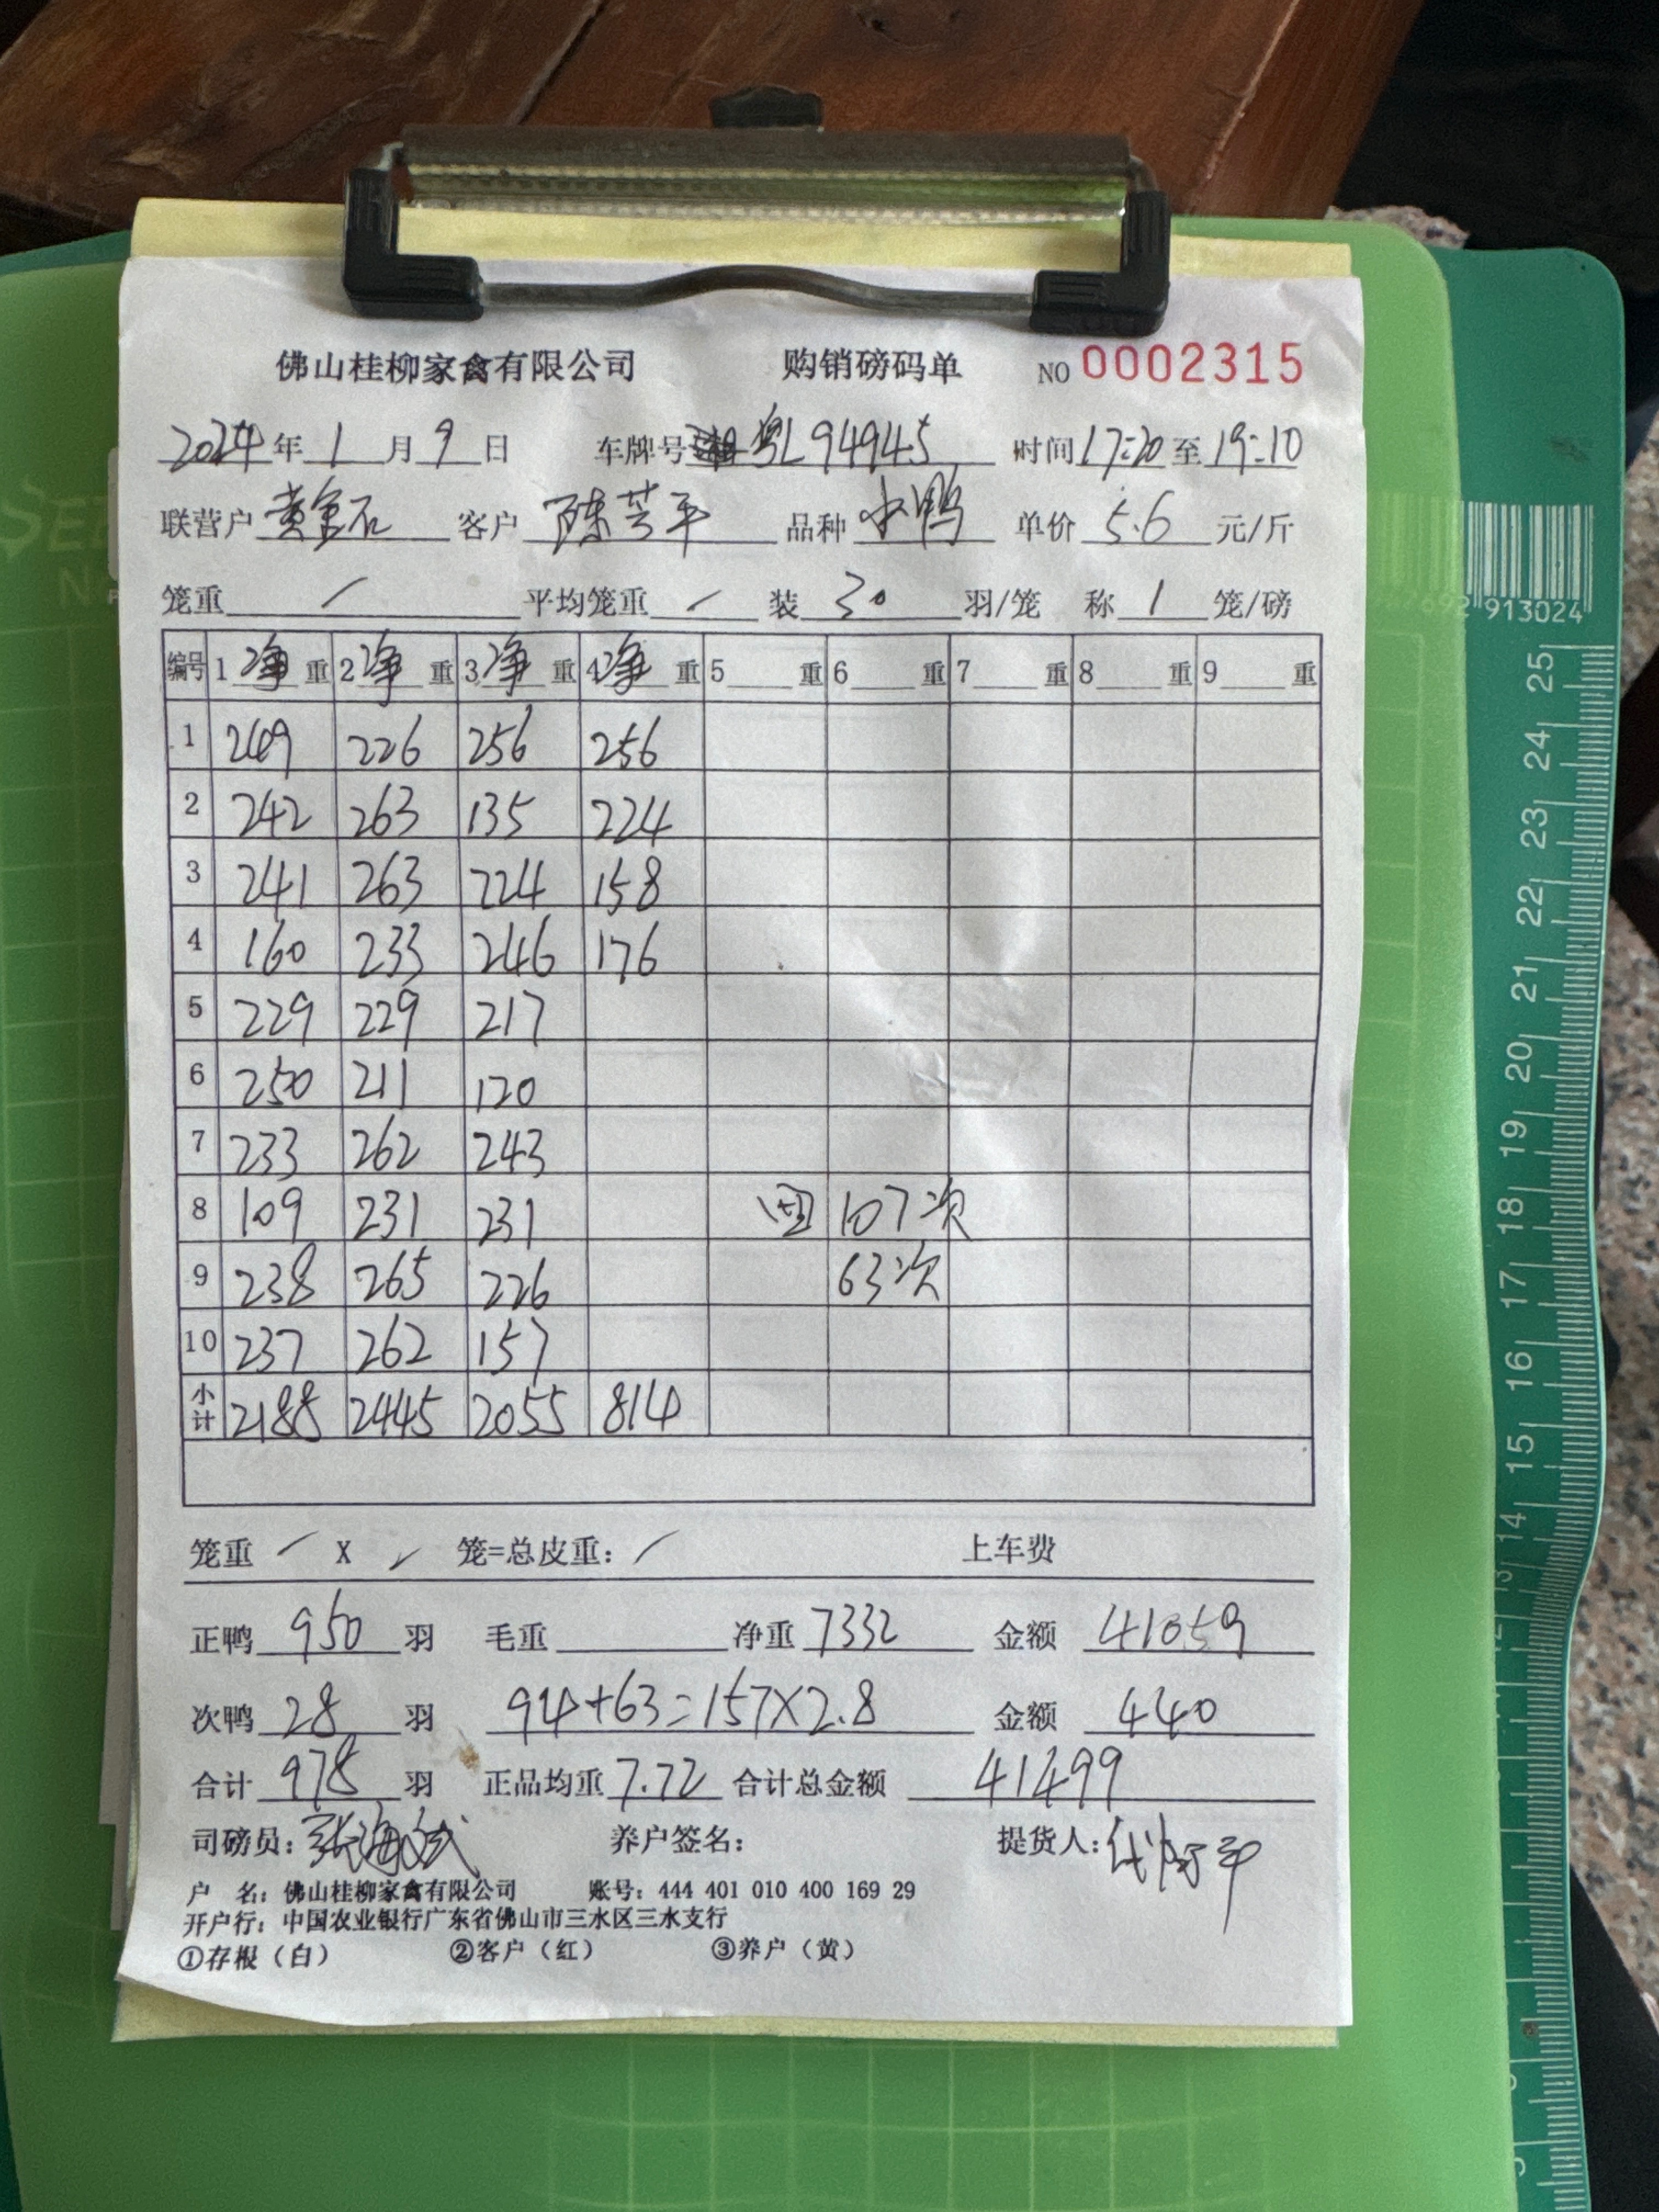 佛山桂柳家禽有限公司 购销磅码单 NO 0002315
2024年1月9日 车牌号 粤L94945 时间17:20至19:10
联营户 黄金石 客户 陈芳平 品种 水鸭 单价 5.6 元/斤
笼重 / 平均笼重 / 装 30 羽/笼 称 1 笼/磅
编号 1 净 重 2 净 重 3 净 重 4 净 重 5 重 6 重 7 重 8 重 9 重
1 249 226 256 256
2 242 263 135 224
3 241 263 224 158
4 160 233 246 176
5 229 229 217
6 250 211 120
7 233 262 243
8 109 231 231 回 107次
9 238 265 226 63次
10 237 262 157
小计 2188 2445 2055 814
笼重 / X / 笼=总皮重: / 上车费
正鸭 950 羽 毛重 净重 7332 金额 41059
次鸭 28 羽 94+63=157×2.8 金额 440
合计 978 羽 正品均重 7.72 合计总金额 41499
司磅员: 张海 养户签名: 提货人:
户 名: 佛山桂柳家禽有限公司 账号: 444 401 010 400 169 29
开户行: 中国农业银行广东省佛山市三水区三水支行
①存根（白） ②客户（红） ③养户（黄）
913024
25
24
23
22
21
20
19
18
17
16
15
14
13